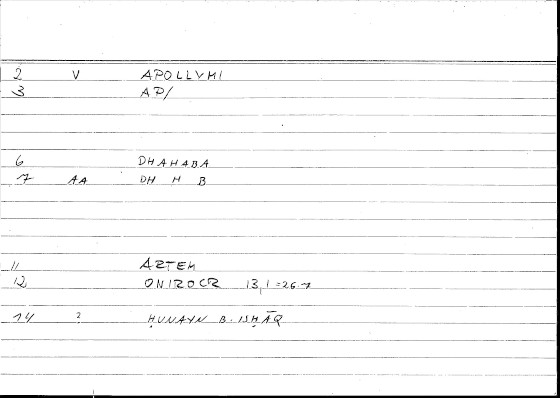 2 V APOLLYMI
3 AP/
6 DHAHABA
7 AA DH H B
11 ARTEM
12 ONIROCR 13,1 = 26.7
14 ? ḤUNAYN B. ISḤĀQ